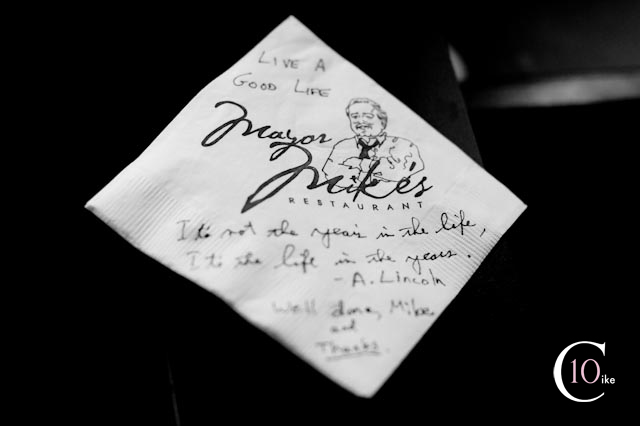 LIVE A
GOOD LIFE
Mayor
Mike's
RESTAURANT
Its not the years in the life,
Its the life in the years.
- A. Lincoln
Well done, Mike
and
Thanks.
C10ike